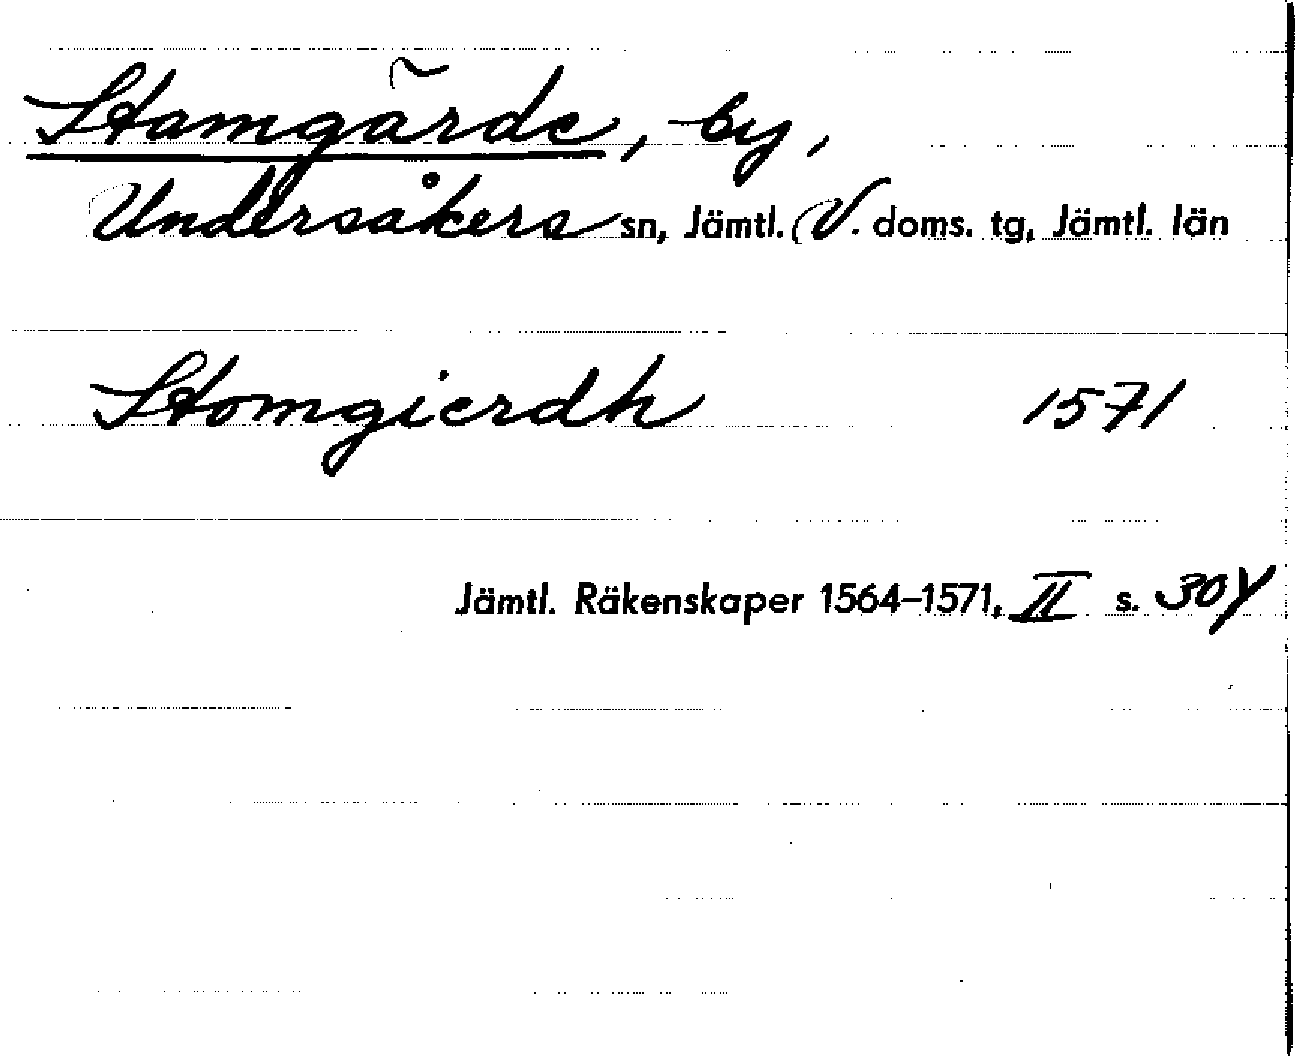 Stamgärde, by,
Undersåkers sn, Jämtl. V. doms. tg, Jämtl. län
Stomgierdh 1571
Jämtl. Räkenskaper 1564–1571, II s. 304